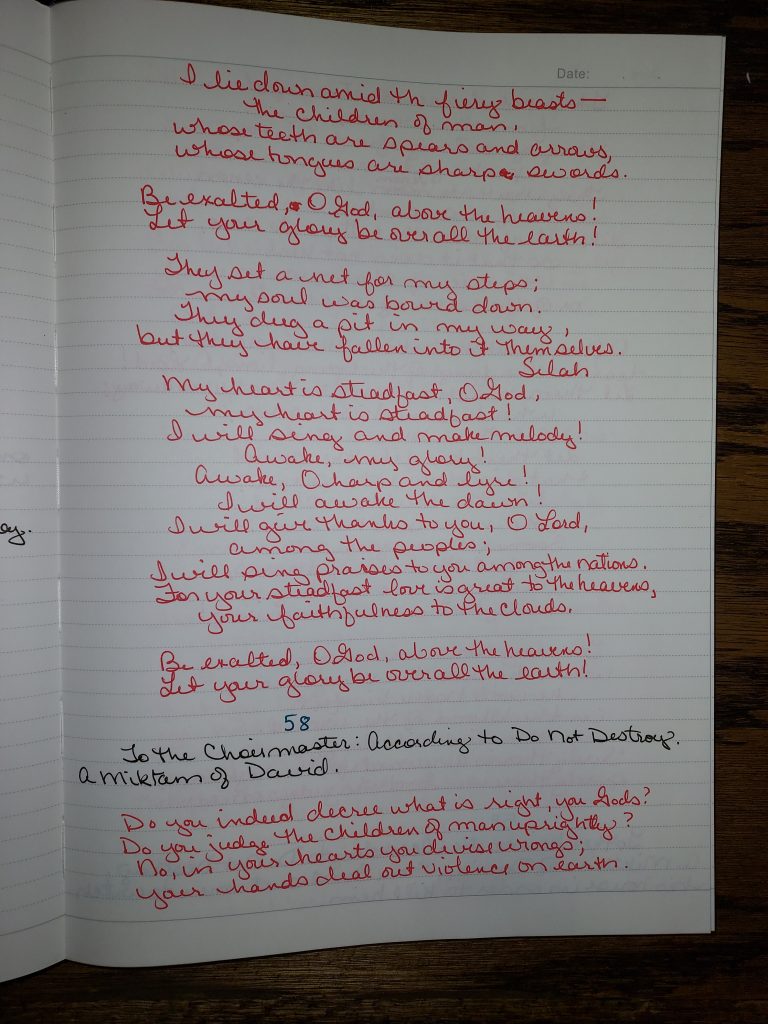 Date:
I lie down amid th fiery beasts—
the children of man,
whose teeth are spears and arrows,
whose tongues are sharp swords.
Be exalted, O God, above the heavens!
Let your glory be over all the earth!
They set a net for my steps;
my soul was bowed down.
They dug a pit in my way,
but they have fallen into it themselves.
Selah
My heart is steadfast, O God,
my heart is steadfast!
I will sing and make melody!
Awake, my glory!
Awake, O harp and lyre!
I will awake the dawn!
I will give thanks to you, O Lord,
among the peoples;
I will sing praises to you among the nations.
For your steadfast love is great to the heavens,
your faithfulness to the clouds.
Be exalted, O God, above the heavens!
Let your glory be over all the earth!
58
To the Choirmaster: According to Do Not Destroy.
A Miktam of David.
Do you indeed decree what is right, you Gods?
Do you judge the children of man uprightly?
No, in your hearts you divise wrongs;
your hands deal out violence on earth.